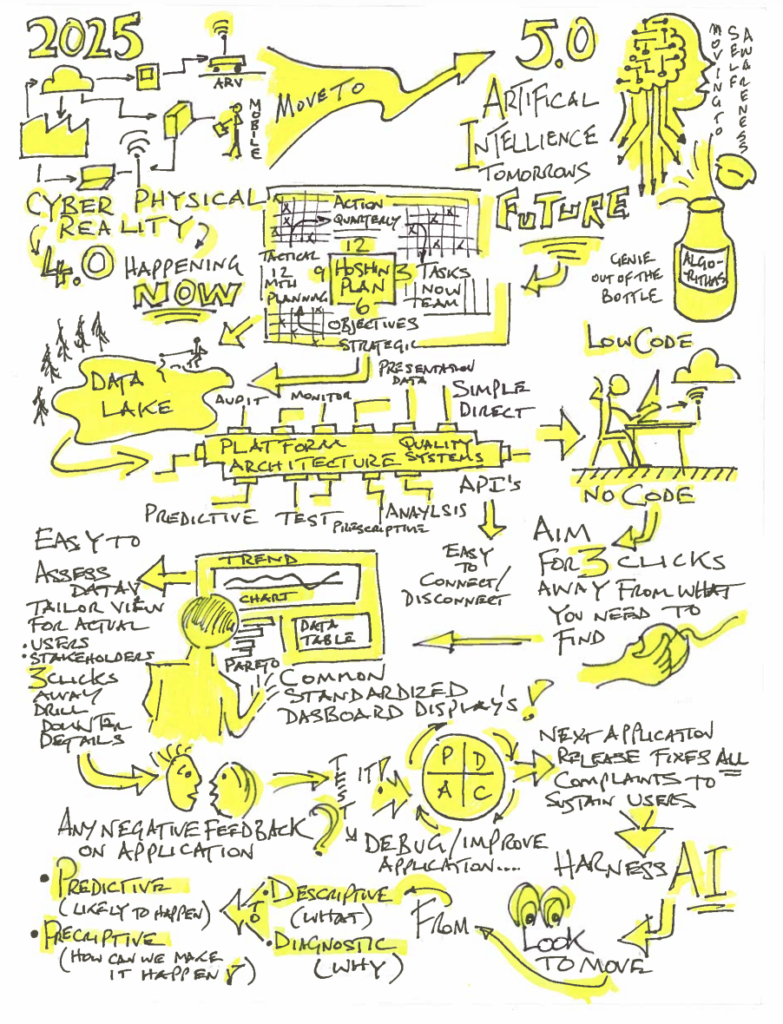 2025
ARV
MOBILE
MOVE TO
5.0
ARTIFICAL
INTELLIENCE
TOMORROWS
FUTURE
MOVING TO
SELF
AWARENESS
CYBER PHYSICAL
REALITY
4.0 HAPPENING
NOW
ACTION
QUARTERLY
TACTICAL
12
MTH
PLANNING
12
9
HOSHIN
PLAN
3
6
TASKS
NOW
TEAM
OBJECTIVES
STRATEGIC
GENIE
OUT OF THE
BOTTLE
ALGO-
RITHMS
LOW CODE
NO CODE
DATA
LAKE
AUDIT
MONITOR
PRESENTATION
DATA
SIMPLE
DIRECT
PLATFORM
ARCHITECTURE
QUALITY
SYSTEMS
API's
PREDICTIVE
TEST
PRESCRIPTIVE
ANAYLSIS
EASY
TO
CONNECT/
DISCONNECT
AIM
FOR 3 CLICKS
AWAY FROM WHAT
YOU NEED TO
FIND
EASY TO
ASSESS
DATA
TAILOR VIEW
FOR ACTUAL
• USERS
• STAKEHOLDERS
3 CLICKS
AWAY
DRILL
DOWN
DETAILS
TREND
CHART
DATA
TABLE
PARETO
COMMON
STANDARDIZED
DASBOARD DISPLAY'S!
ANY NEGATIVE FEEDBACK ?
ON APPLICATION
TEST
IT!
P D
A C
DEBUG/IMPROVE
APPLICATION....
NEXT APPLICATION
RELEASE FIXES ALL
COMPLAINTS TO
SUSTAIN USERS
HARNESS AI
LOOK
TO MOVE
FROM
• DESCRIPTIVE
(WHAT)
• DIAGNOSTIC
(WHY)
TO
• PREDICTIVE
(LIKELY TO HAPPEN)
• PRECRIPTIVE
(HOW CAN WE MAKE
IT HAPPEN)